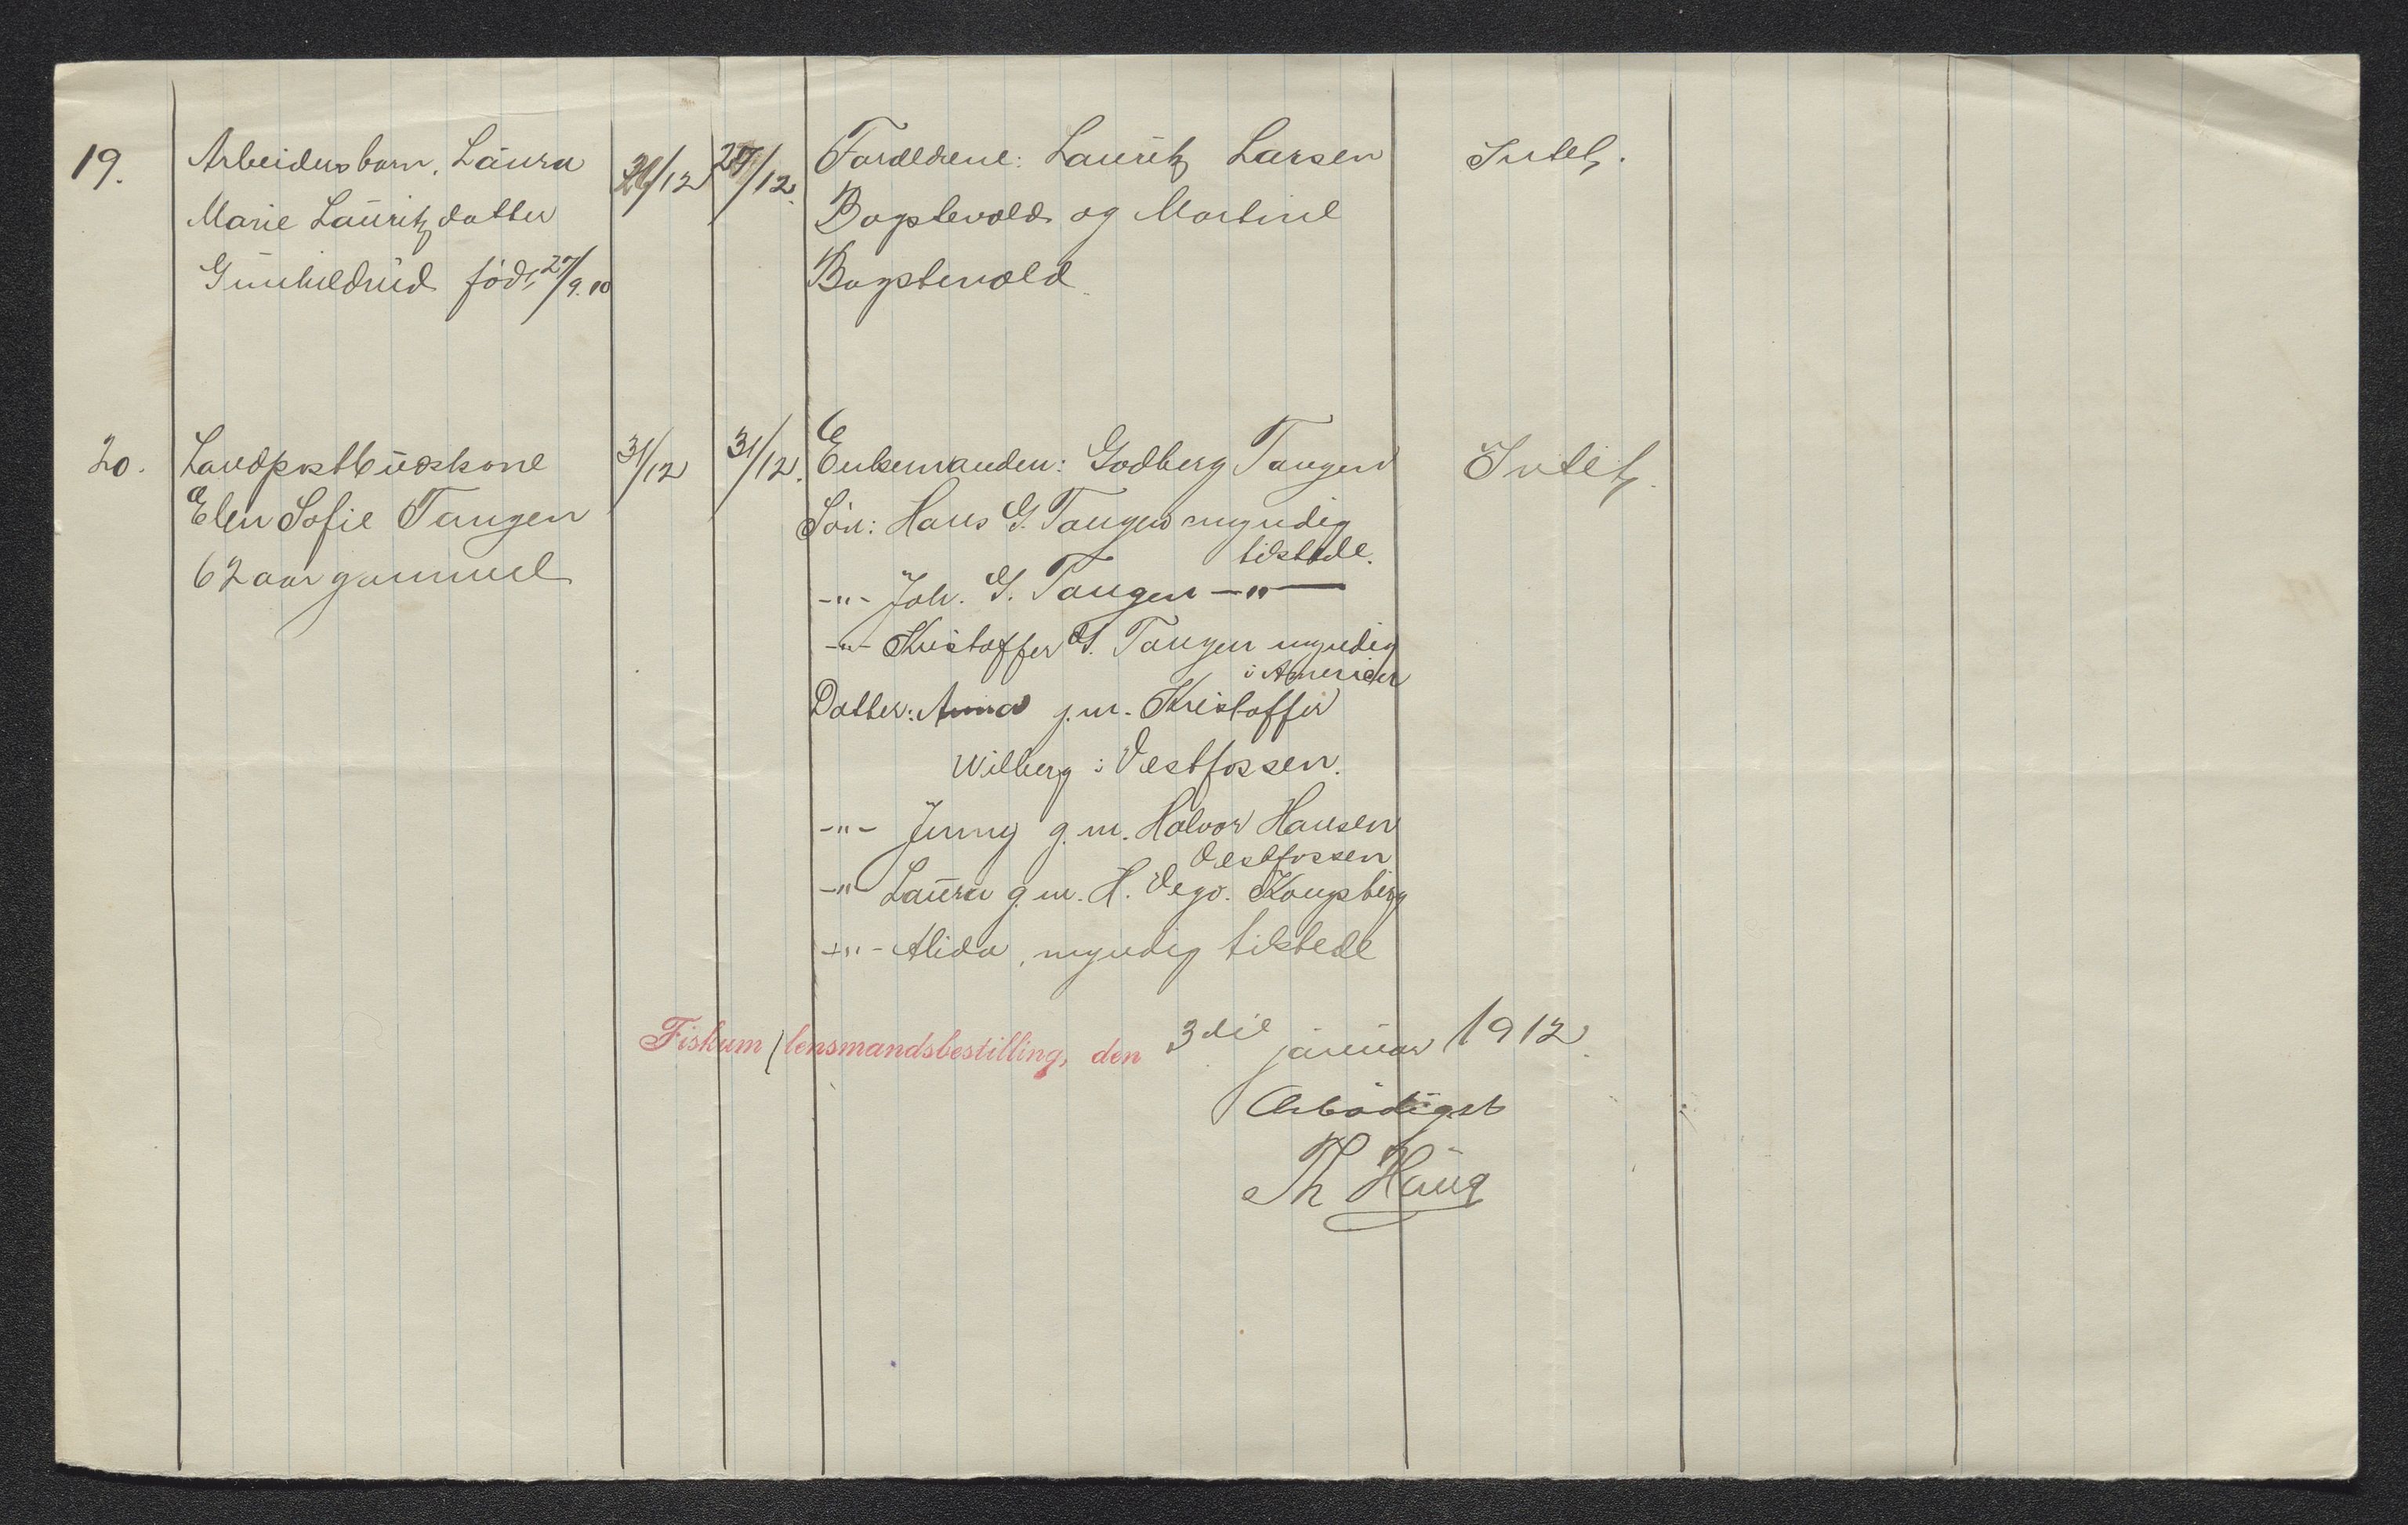 19.
Arbeidersbarn, Laura
Marie Lauritzdatter
Gunhildrud född 27/9.10
26/12
27/12.
Forældrene: Lauritz Larsen
Bagstevold og Martine
Bagstevold
Intet.
20.
Landpostbudskone
Elen Sofie Tangen
62 aar gammel
31/12
31/12.
Enkemanden: Godberg Tangen
Sön: Hans G. Tangen myndig
tilstede.
-"- Joh. G. Tangen -"-
-"- Kristoffer G. Tangen myndig
i America
Datter: Anna g.m. Kristoffer
Wilberg i Vestfossen.
-"- Jenny g.m. Halvor Hansen
Vestfossen
-"- Laura g.m. H. Kongsberg
-"- Alida, myndig tilstede
Intet.
Fiskum lensmandsbestilling, den 3die januar 1912.
Ærbödigst
Th Haug